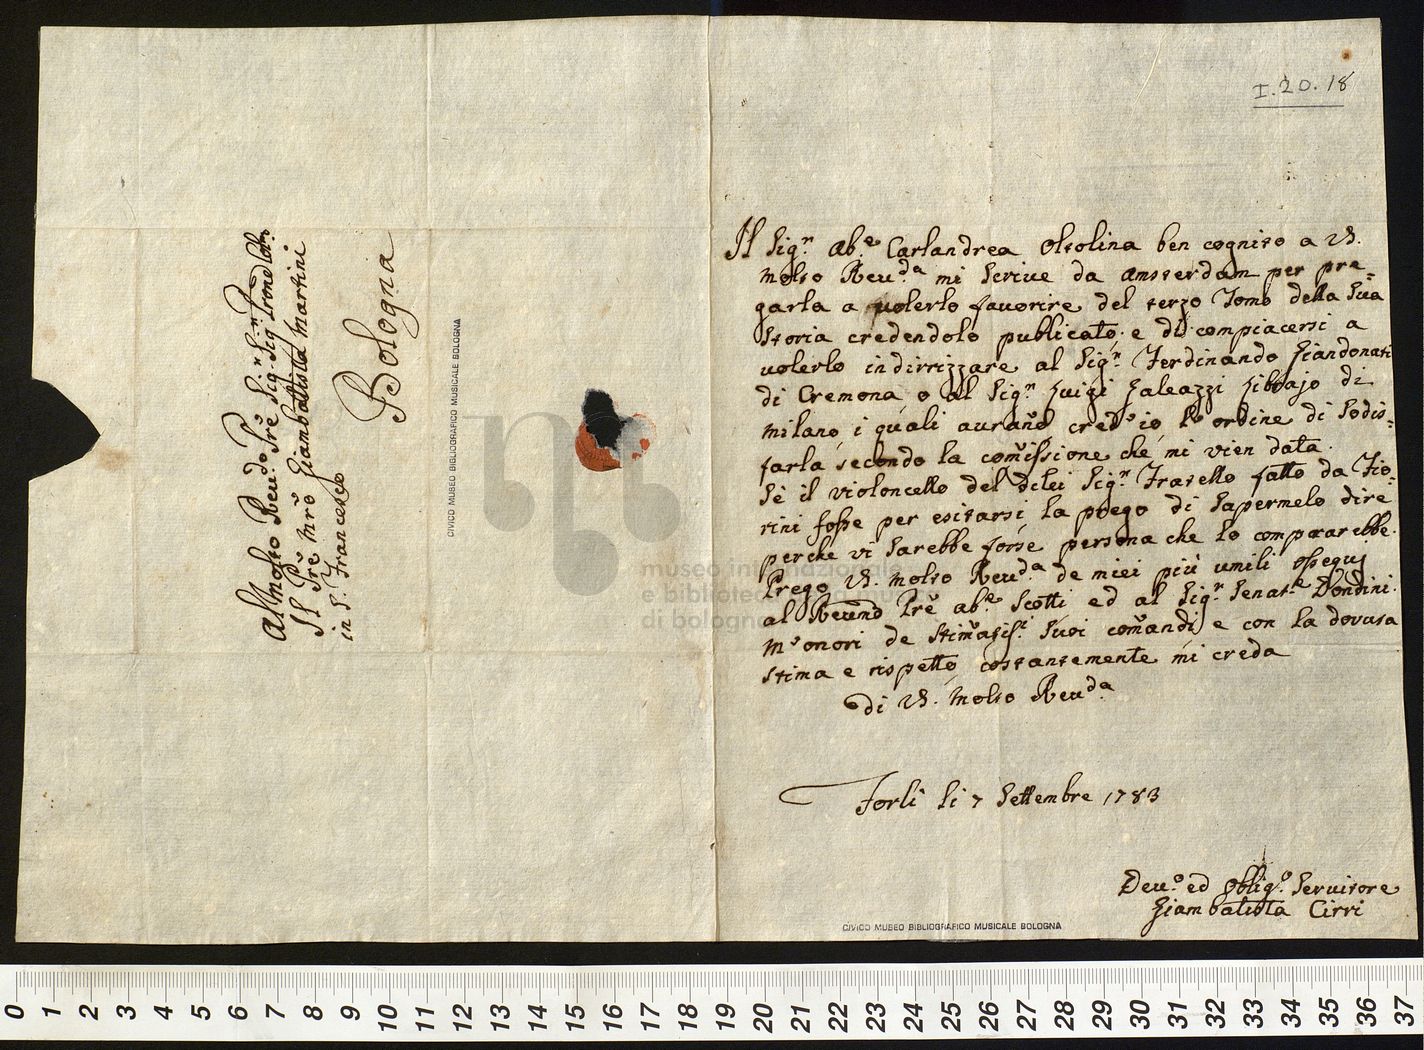 Al Molto Reu:do Prē Sig:r Sig:r Prone Col:mo
Il Prē Mrō Giambattista Martini
in S. Francesco
Bologna
CIVICO MUSEO BIBLIOGRAFICO MUSICALE BOLOGNA
I.20.18
Il Sig:r Ab:e Carlandrea Oltolina ben cognito a V.S.
Molto Reu:da mi scriue da Amsterdam per pre=
garla a uolerlo fauorire del terzo Tomo della sua
storia credendolo publicato, e di compiacersi a
uolerlo indirrizzare al Sig:r Ferdinando Giandonati
di Cremona, o al Sig:r Luigi Galeazzi Libbrajo di
Milano, i quali aurañο cred'io l'ordine di sodis=
farla, secondo la com̃issione che mi vien data.
Sè il violoncello del dilei Sig:r Fratello fatto da Fio=
rini fosse per esitarsi, la prego di sapermelo dire
perche vi sarebbe forse persona che lo comprarebbe.
Prego V.S. Molto Reu:da de miei più umili ossequij
al Reum̃o Prē ab:e Scotti ed al Sig:r Senat:e Dondini.
M'onori de stimatis:i suoi com̃andi, e con la douuta
stima e rispetto costantemente mi creda
di V.S. Molto Reu:da
Forlì li 7 Settembre 1783
Deu:o ed obblig:o Seruitore
Giambattista Cirri
CIVICO MUSEO BIBLIOGRAFICO MUSICALE BOLOGNA
museo internazionale
e biblioteca della musica
di bologna
0 1 2 3 4 5 6 7 8 9 10 11 12 13 14 15 16 17 18 19 20 21 22 23 24 25 26 27 28 29 30 31 32 33 34 35 36 37